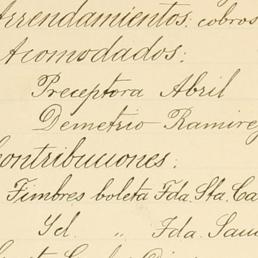 Arrendamientos: cobros
Acomodados:
Preceptora Abril
Demetrio Ramirez
Contribuciones:
Timbres boleta Fda. Sta. Ca
Yd. " Fda. Sau